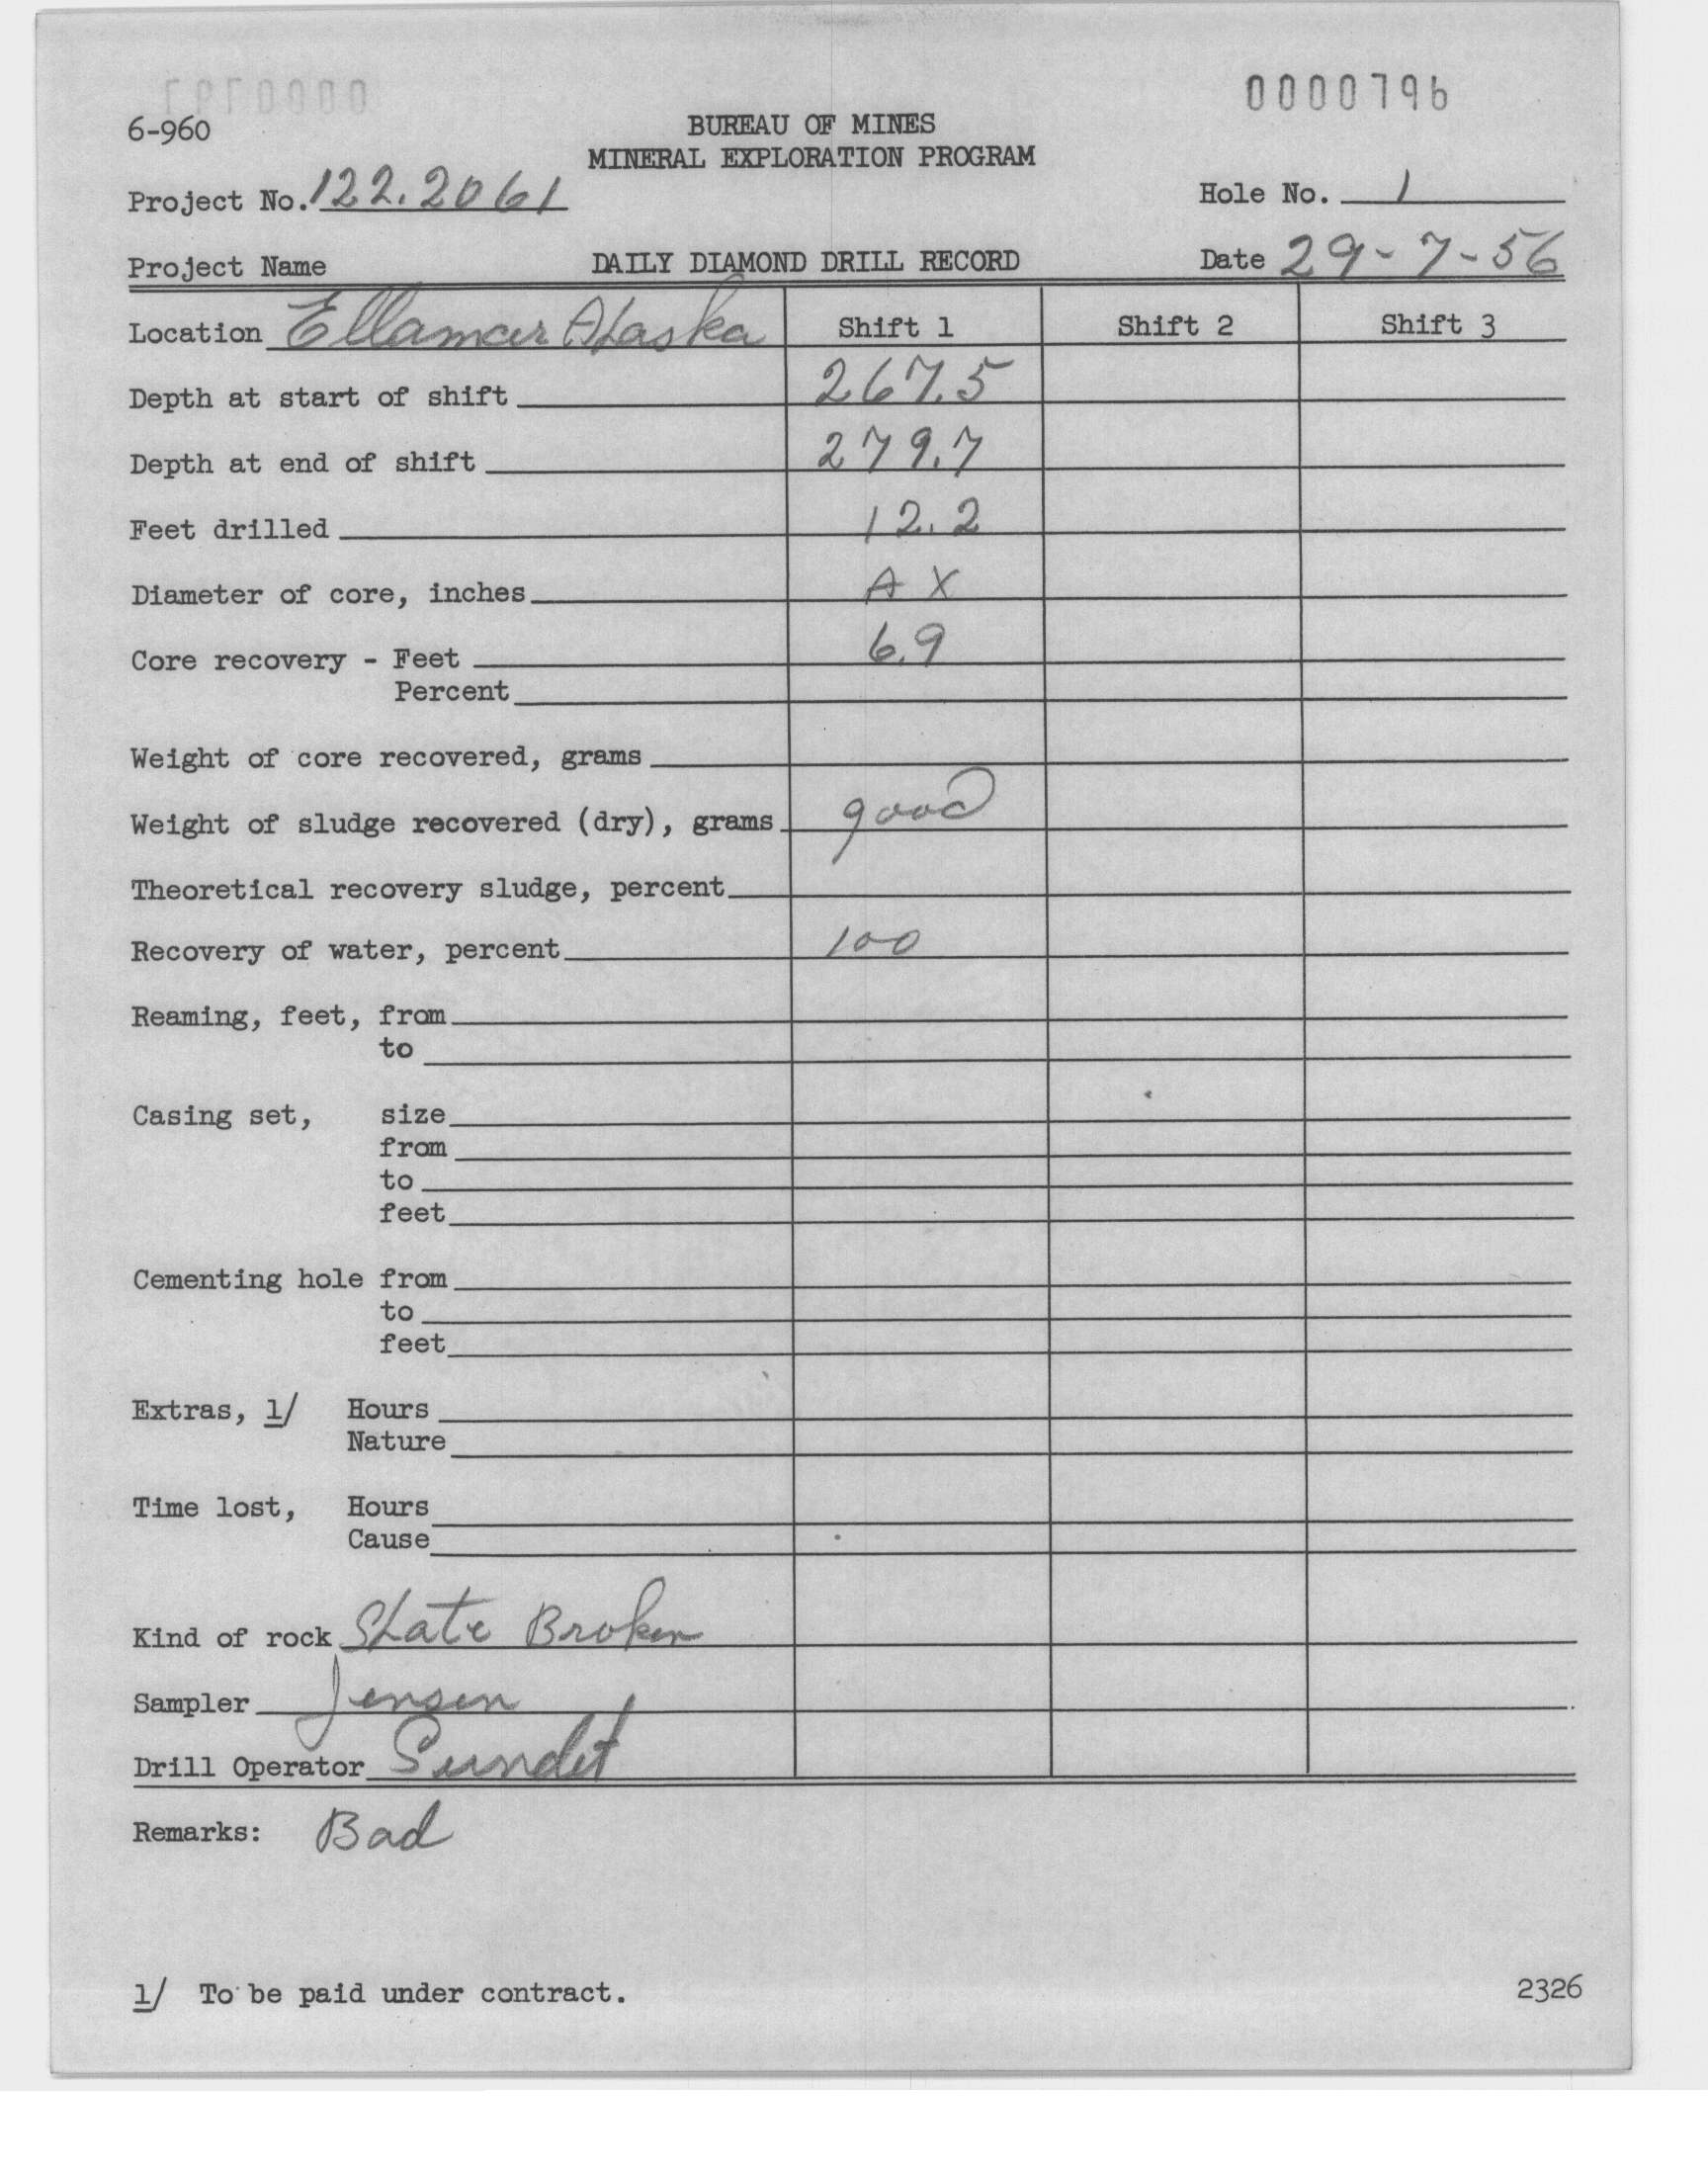 0000796
6-960
BUREAU OF MINES
MINERAL EXPLORATION PROGRAM
Project No. 122.2061
Hole No. 1
Project Name
DAILY DIAMOND DRILL RECORD
Date 29-7-56
Location Ellamar Alaska Shift 1 Shift 2 Shift 3
Depth at start of shift 267.5
Depth at end of shift 279.7
Feet drilled 12.2
Diameter of core, inches AX
Core recovery - Feet 6.9
Percent
Weight of core recovered, grams
Weight of sludge recovered (dry), grams good
Theoretical recovery sludge, percent
Recovery of water, percent 100
Reaming, feet, from
to
Casing set, size
from
to
feet
Cementing hole from
to
feet
Extras, 1/ Hours
Nature
Time lost, Hours
Cause
Kind of rock Slate Broken
Sampler Jensen
Drill Operator Sundet
Remarks: Bad
1/ To be paid under contract.
2326